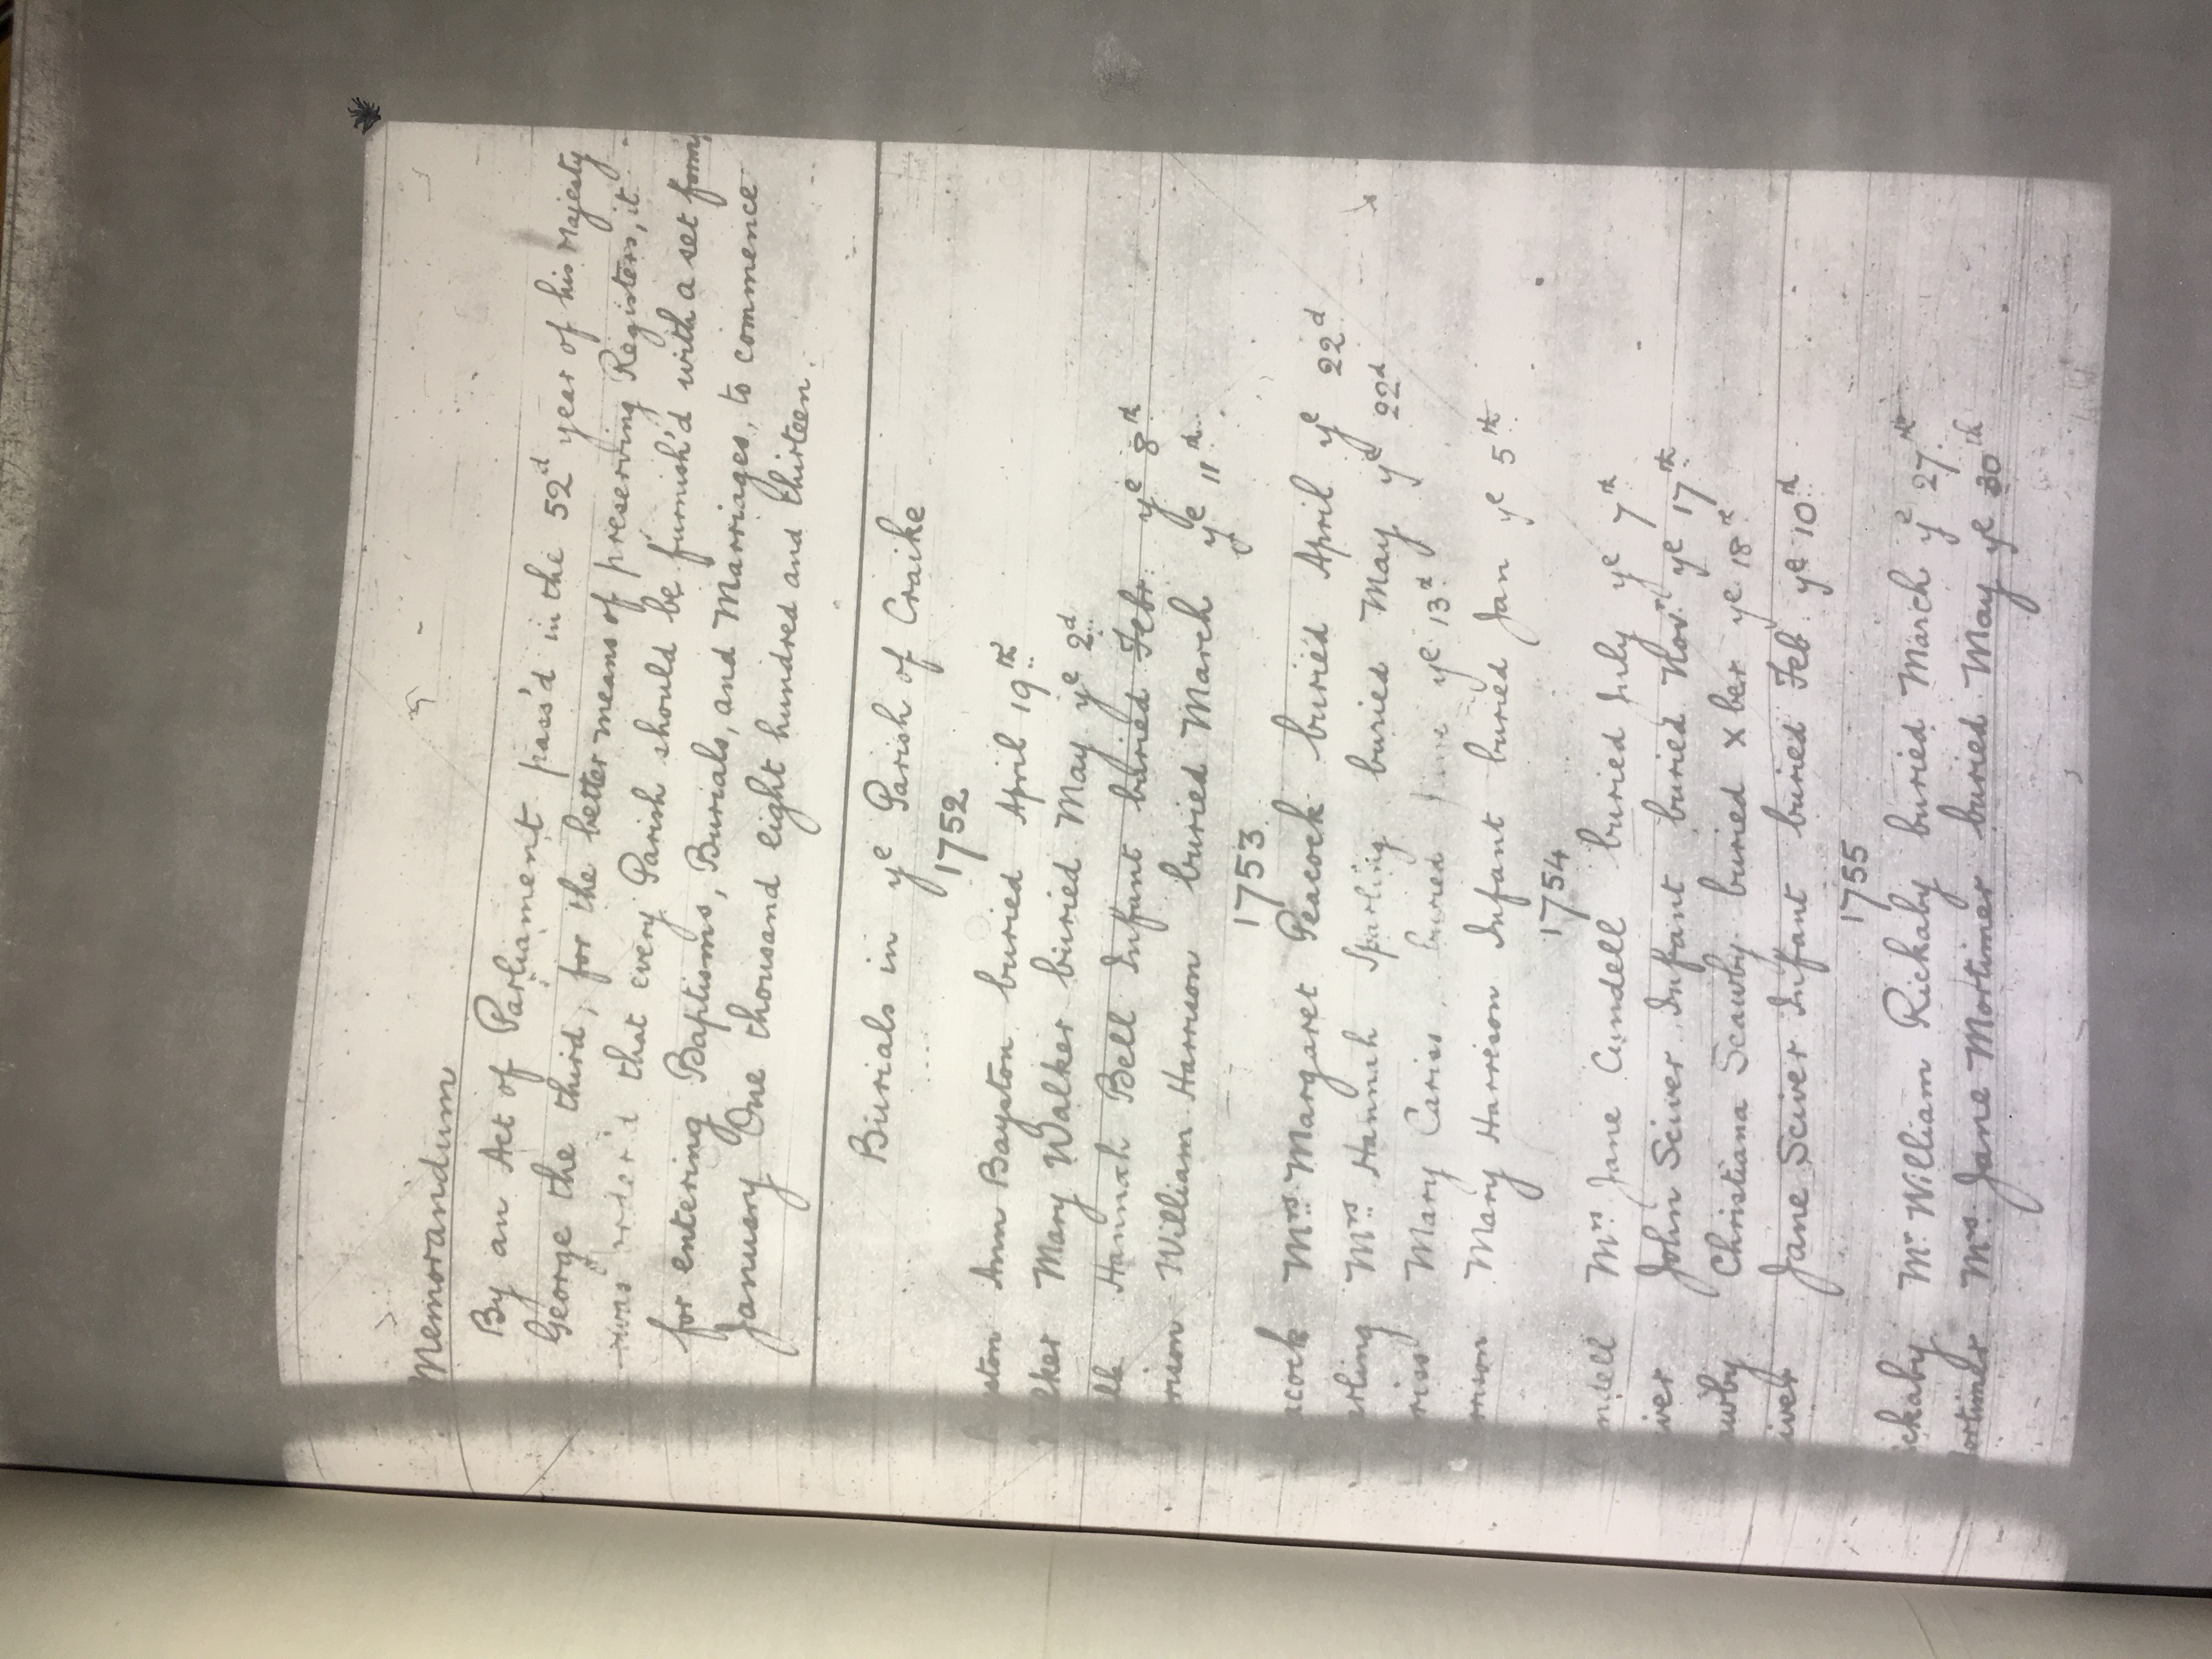 Memorandum
By an Act of Parliament pass'd in the 52d year of his Majesty
George the third, for the better means of preserving Registers, it
was order'd that every Parish should be furnish'd with a set form,
for entering Baptisms, Burials, and Marriages, to commence
January One thousand eight hundred and thirteen.
Burials in ye Parish of Craike
1752
ston Ann Bayston buried April 19th
lker Mary Walker buried May ye 2d
ell Hannah Bell Infant buried Febr. ye 8th
rison William Harrison buried March ye 11th
1753
acock Mrs Margaret Peacock buried April ye 22d
erling Mrs Hannah Sparling buried May ye 22d
riss Mary Cariss buried June ye 13th
rrison Mary Harrison Infant buried Jan ye 5th
1754
ndell Mrs Jane Cundell buried July ye 7th
iver John Sciver Infant buried Novr ye 17th
awby Christiana Scawby buried Xber ye 18th
iver Jane Sciver Infant buried Feb ye 10th
1755
ickaby Mr William Rickaby buried March ye 27th
ortimer Mrs Jane Mortimer buried May ye 30th